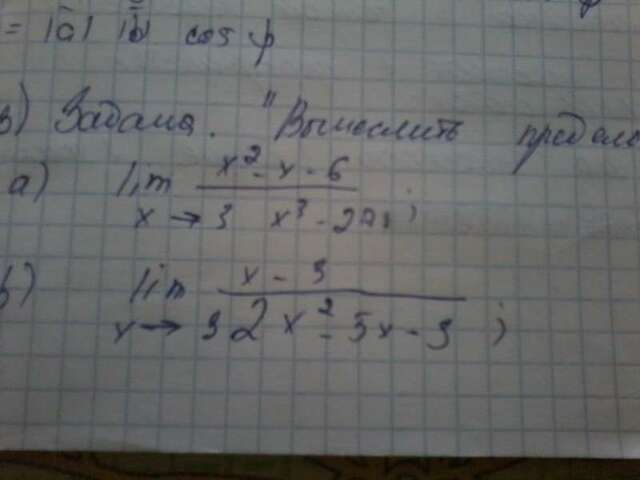 = |a̅| |b̅| cos φ
в) Задача. "Вычислить пределы
а) lim x² - x - 6
x → 3 x³ - 27 ;
b) lim x - 3
x → 3 2x² - 5x - 3 ;